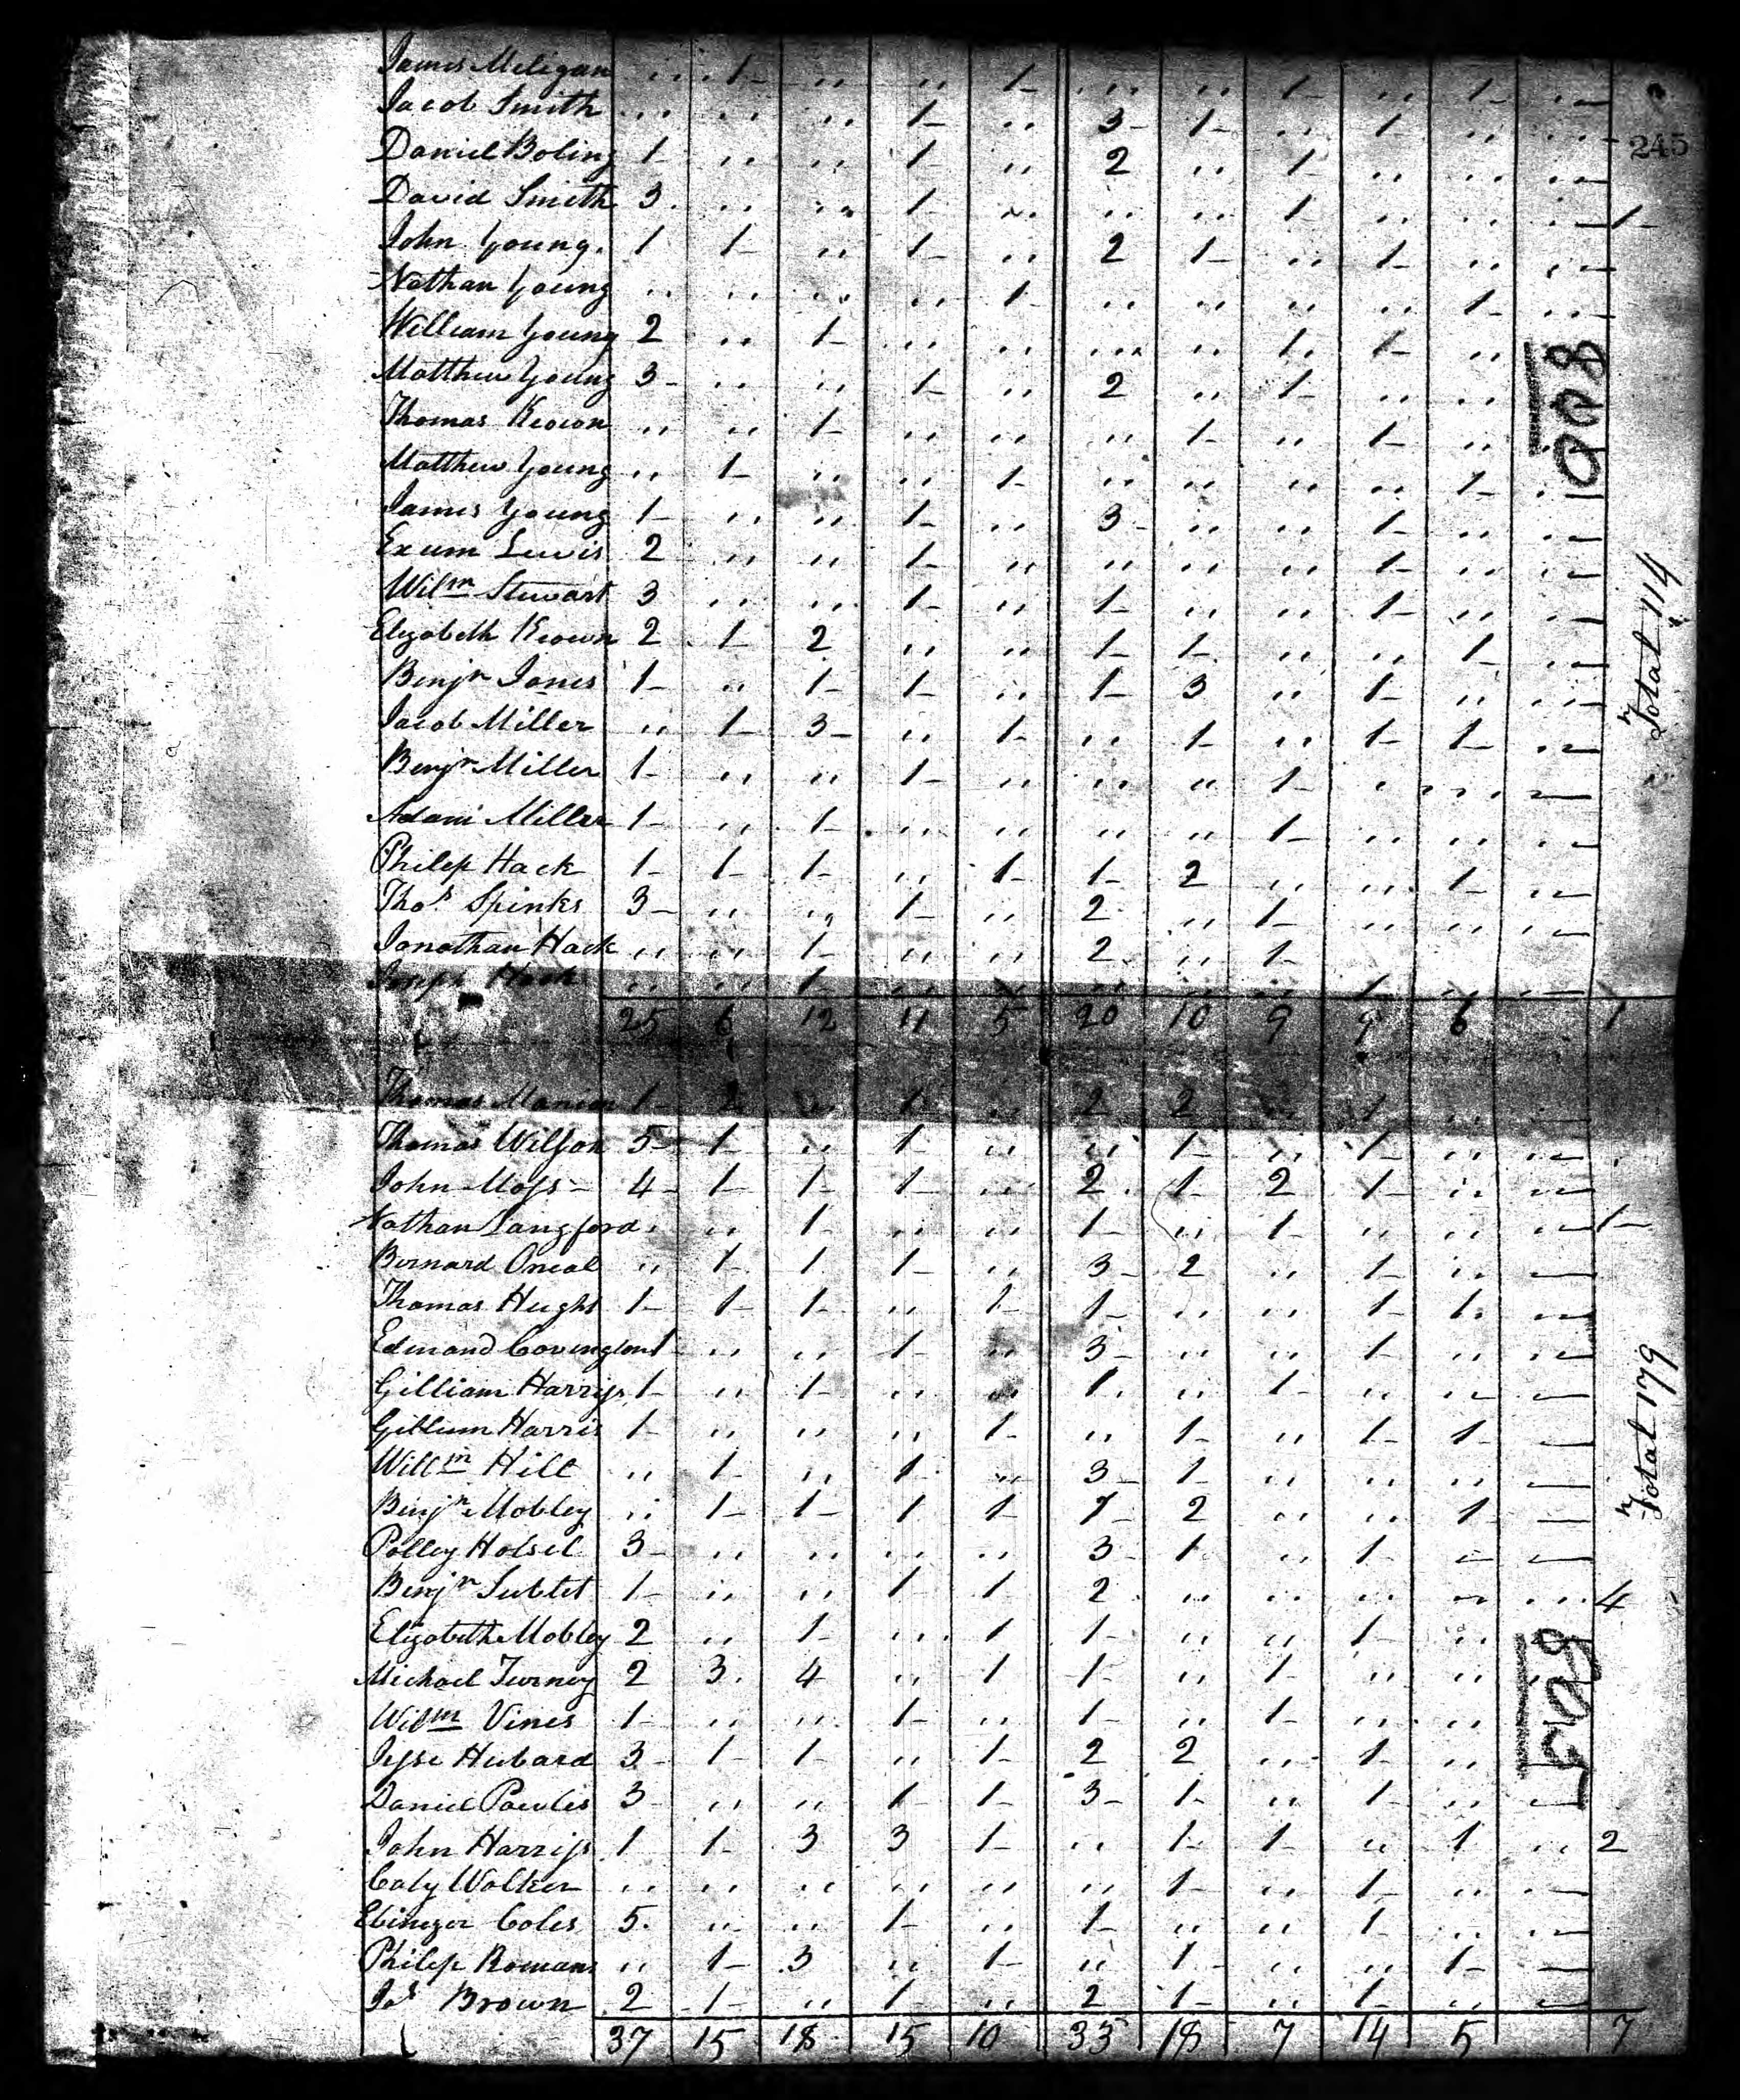 James Meligan .. 1 .. .. 1 .. .. 1 .. 1 ..
Jacob Smith .. .. .. 1 .. 3 1 .. 1 .. ..
245
Daniel Boling 1 .. .. 1 .. 2 .. 1 .. .. ..
David Smith 3 .. .. 1 .. .. .. 1 .. .. .. 1
John Young 1 1 .. 1 .. 2 1 .. 1 .. ..
Nathan Young .. .. .. .. 1 .. .. .. .. 1 ..
William Young 2 .. 1 .. .. .. .. 1 1 ..
Matthew Young 3 .. .. 1 .. 2 .. 1 .. ..
Thomas Keown .. .. 1 .. .. .. 1 .. 1 ..
Matthew Young .. 1 .. .. 1 .. .. .. .. 1 ..
James Young 1 .. .. 1 .. 3 .. .. 1 .. ..
Exum Lewis 2 .. .. 1 .. .. .. .. 1 .. ..
Wilm Stewart 3 .. .. 1 .. 1 .. .. 1 .. ..
Elizabeth Keown 2 1 2 .. .. 1 1 .. .. 1 ..
Benjn Jones 1 .. 1 1 .. 1 3 .. 1 .. ..
Jacob Miller .. 1 3 .. 1 .. 1 .. 1 1 ..
Benjn Miller 1 .. .. 1 .. .. .. 1 .. .. ..
Adam Miller 1 .. 1 .. .. .. .. 1 .. .. ..
Philip Hack 1 1 1 .. 1 1 2 .. .. 1 ..
Thos Spinks 3 .. .. 1 .. 2 .. 1 .. .. ..
Jonathan Hack .. .. 1 .. .. 2 .. 1
Joseph Hack .. .. 1 .. .. .. .. .. 1 .. ..
25 6 12 11 5 20 10 9 9 6 1
800
Total 114
Thomas 1 2 .. 1 .. 2 2 .. 1 .. ..
Thomas Wilson 5 1 .. 1 .. .. 1 .. 1 .. ..
John Moss 4 1 1 1 .. 2 1 2 1 .. ..
Nathan Langford .. .. 1 .. .. 1 .. 1 .. .. .. 1
Bernard Oneal .. 1 1 1 .. 3 2 .. 1 ..
Thomas Hughs 1 1 1 .. 1 1 .. .. 1 1 ..
Edmond Covington 1 .. .. 1 .. 3 .. .. 1 .. ..
Gilliam Harriss 1 .. 1 .. .. 1 .. 1 .. ..
Gillum Harris 1 .. .. .. 1 .. 1 .. 1 1
Willm Hill .. 1 .. 1 .. 3 1 .. .. ..
Benjn Mobley .. 1 1 1 1 1 2 .. .. 1
Polley Holsel 3 .. .. .. .. 3 1 .. 1 ..
Benjn Sublet 1 .. .. 1 1 2 .. .. .. .. .. 4
Elizabeth Mobley 2 .. 1 .. 1 1 .. .. 1 ..
Michael Turney 2 3 4 .. 1 1 .. 1 .. ..
Wilm Vines 1 .. .. 1 .. 1 .. 1 .. ..
Jesse Hubard 3 1 1 .. 1 2 2 .. 1 ..
Daniel Powles 3 .. .. 1 1 3 1 .. 1 ..
John Harriss 1 1 3 3 1 .. 1 1 .. 1 .. 2
Caty Walker .. .. .. .. .. .. 1 .. 1 .. ..
Ebinezer Coles 5 .. .. 1 .. 1 .. .. 1 .. ..
Philip Romans .. 1 3 .. 1 .. 1 .. .. 1
Jas Brown 2 1 .. 1 .. 2 1 .. 1 .. ..
37 15 18 15 10 33 18 7 14 5 7
Total 179